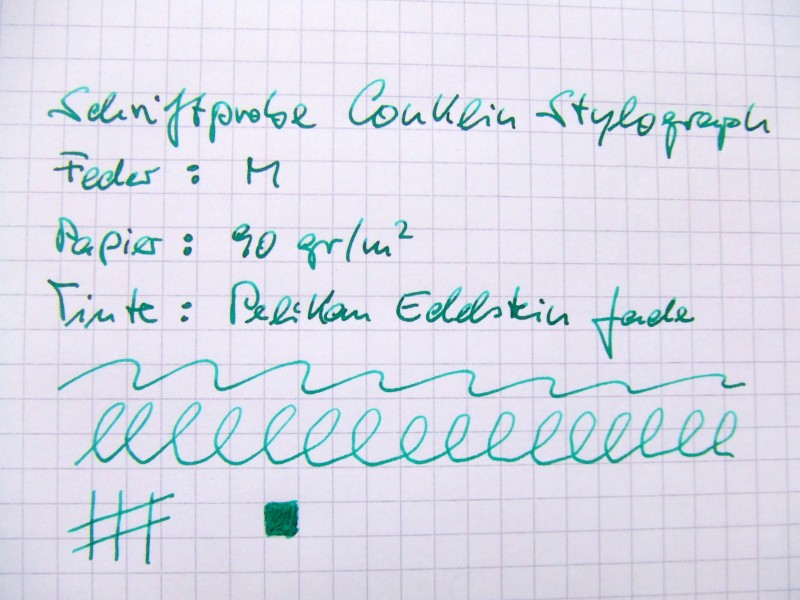 Schriftprobe Conklin Stylograph
Feder : M
Papier : 90 gr/m²
Tinte : Pelikan Edelstein Jade